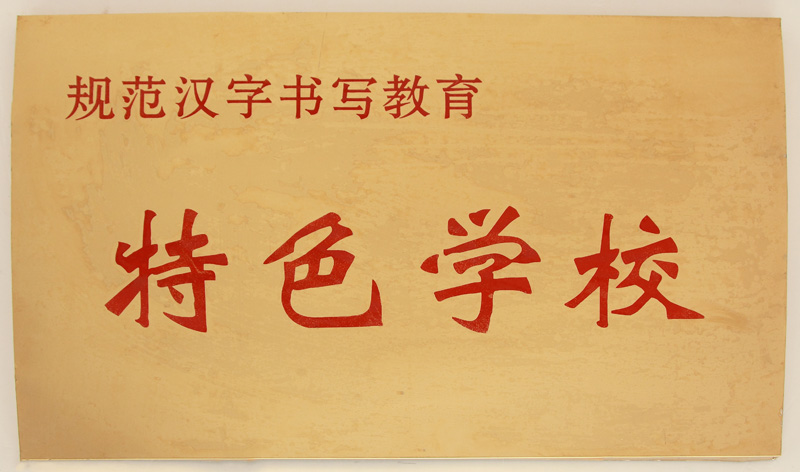 规范汉字书写教育
特色学校